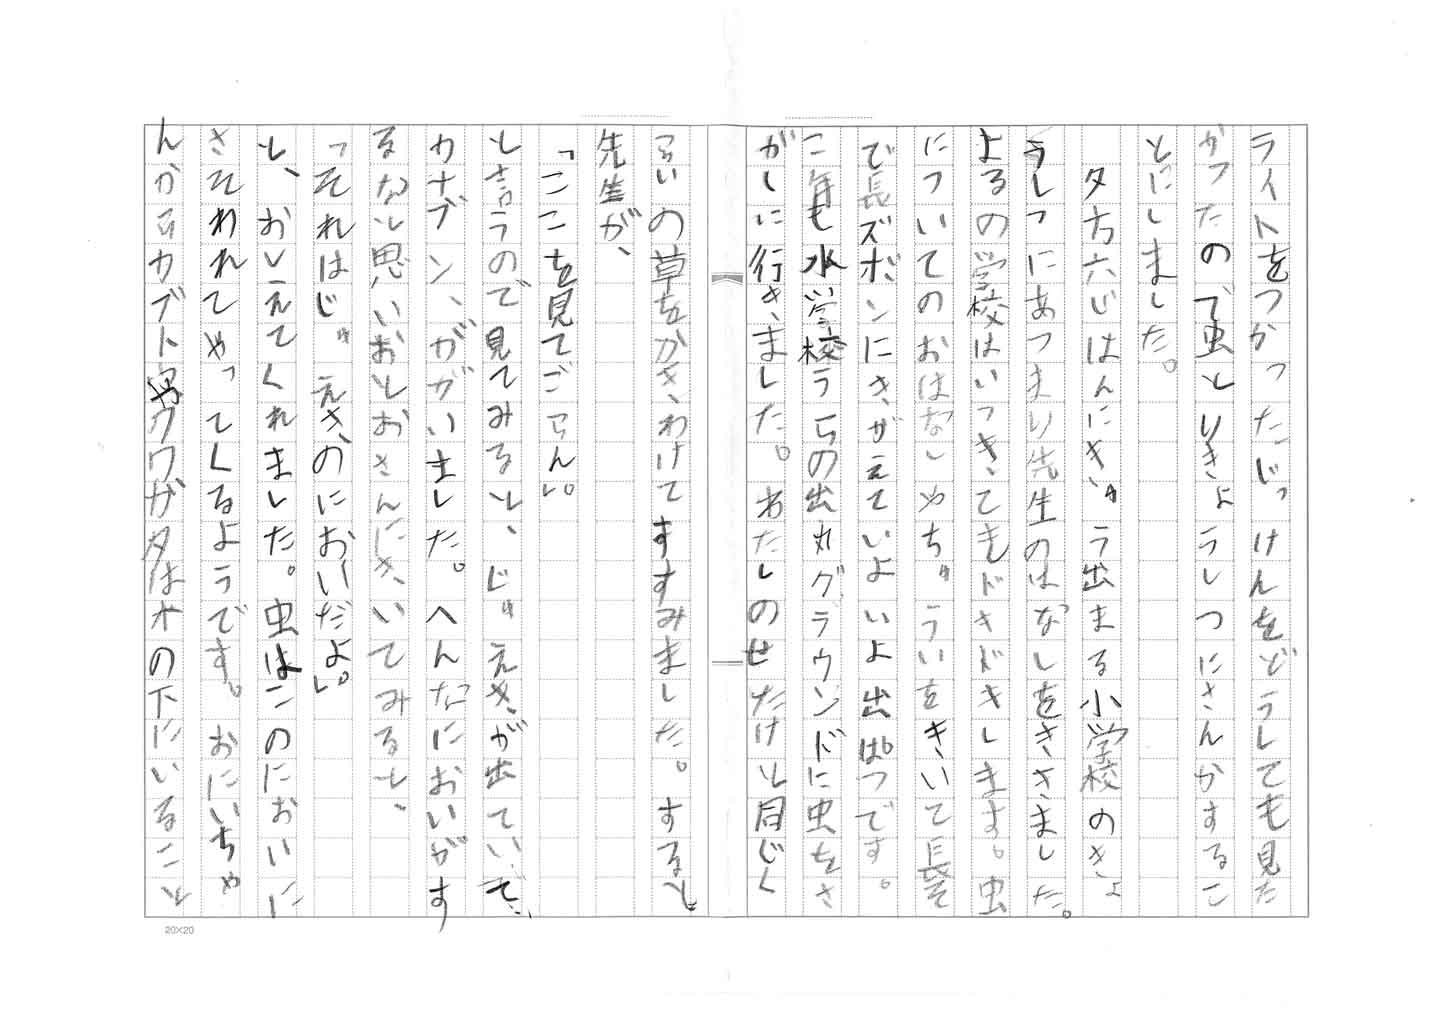 ライトをつかったじっけんをどうしても見た
かったので虫とりきょうしつにさんかするこ
とにしました。
夕方六じはんにき゛ゅう出まる小学校のきょ
うしつにあつまり先生のはなしをききました。
よるの学校はいつきてもドキドキします。虫
についてのおはなしやち゛ゅういをきいて長そ
で長ズボンにきがえていよいよ出ぱつです。
二年も水学校うらの出丸グラウンドに虫をさ
がしに行きました。わたしのせたけと同じく
らいの草をかきわけてすすみました。すると
先生が、
「ここを見てごらん。」
と言うので見てみると、じゅえきが出ていて、
カナブン、ががいました。へんなにおいがす
るなと思いおとおさんにきいてみると、
「それはじゅえきのにおいだよ。」
と、おしえてくれました。虫はこのにおいに
さそわれてやってくるようです。おにいちゃ
んからカブトやクワガタはオの下にいること
20×20